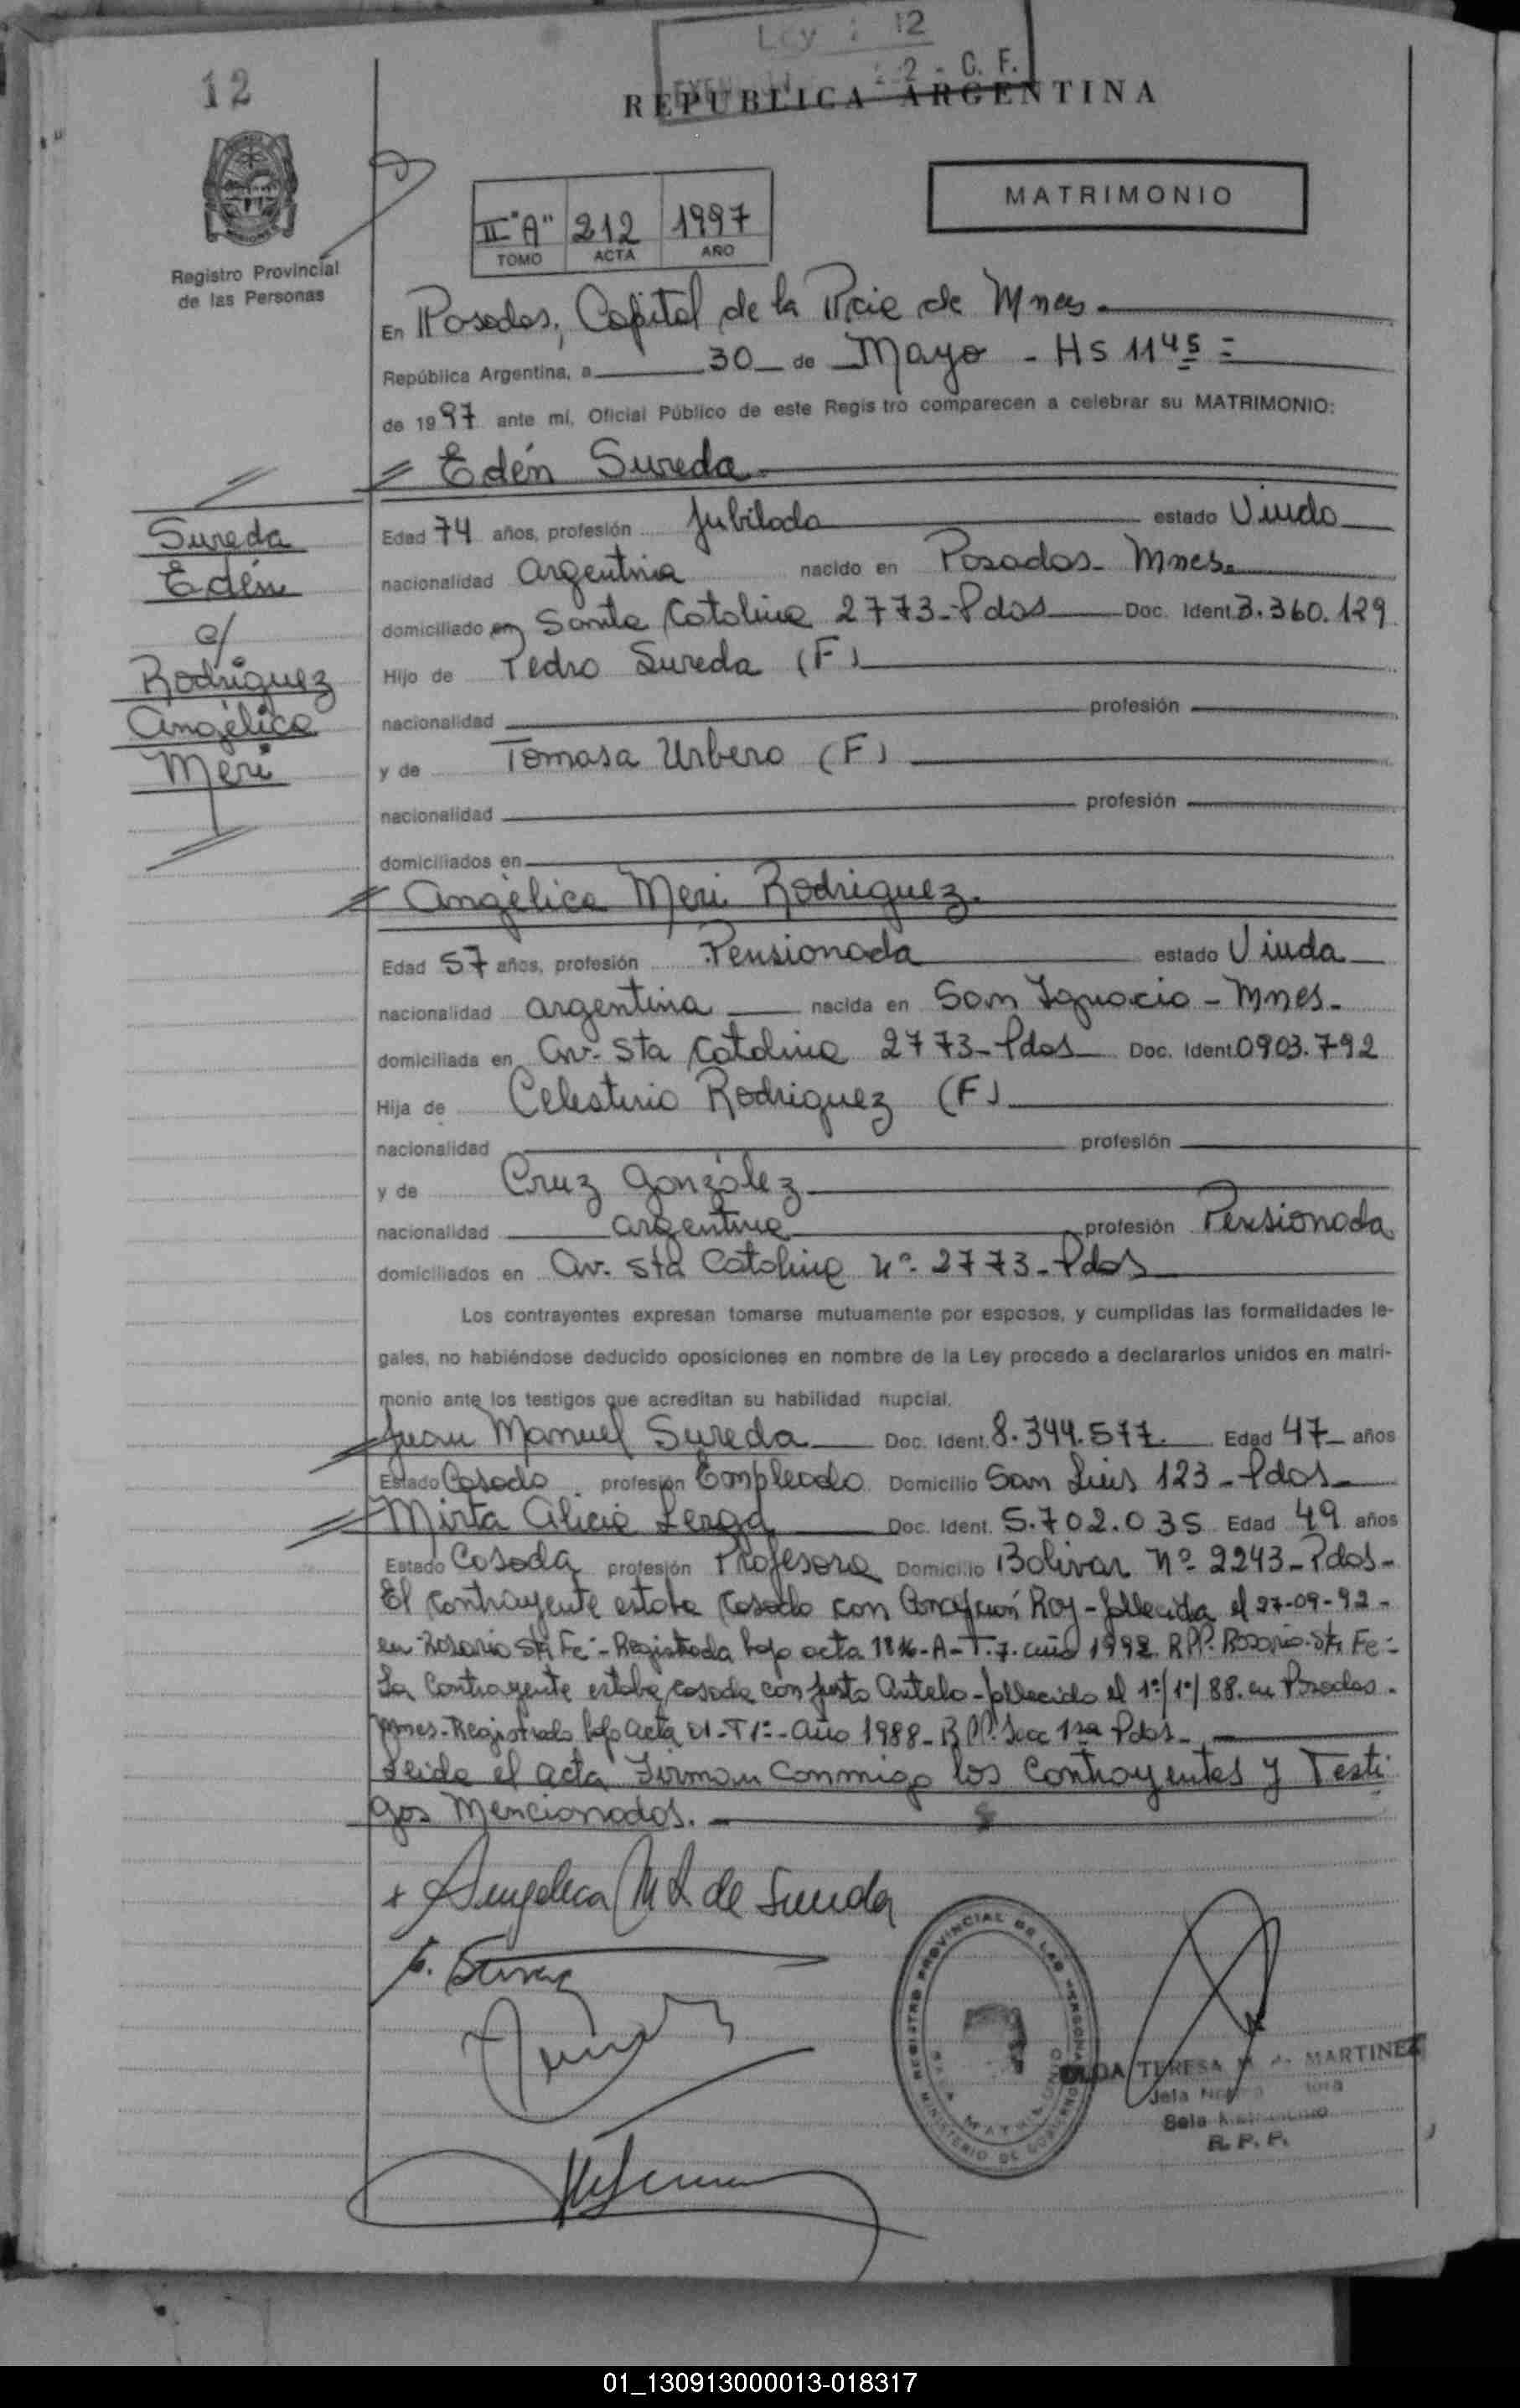 Ley : 12
2 - C. F.
12
REPUBLICA ARGENTINA
MATRIMONIO
II "A" 212 1997
TOMO ACTA AÑO
Registro Provincial
de las Personas
En Posadas, Capital de la Pcie de Mnes.
República Argentina, a 30 de Mayo - Hs 11 45 =
de 1997 ante mí, Oficial Público de este Regis tro comparecen a celebrar su MATRIMONIO:
Edén Sureda
Sureda
Edén
c/
Rodríguez
Angélica
Meri
Edad 74 años, profesión Jubilado estado Viudo
nacionalidad Argentina nacido en Posadas - Mnes.
domiciliado en Santa Catalina 2773 - Pdas Doc. Ident. 3.360.129
Hijo de Pedro Sureda (F)
nacionalidad profesión
y de Tomasa Urbero (F)
nacionalidad profesión
domiciliados en
Angélica Meri Rodriguez.
Edad 57 años, profesión Pensionada estado Viuda
nacionalidad argentina nacida en San Ignacio - Mnes.
domiciliada en Av. Sta Catalina 2773 - Pdas Doc. Ident. 0903.792
Hija de Celestino Rodriguez (F)
nacionalidad profesión
y de Cruz González
nacionalidad argentina profesión Pensionada
domiciliados en Av. Sta Catalina Nº. 2773 - Pdas
Los contrayentes expresan tomarse mutuamente por esposos, y cumplidas las formalidades le-
gales, no habiéndose deducido oposiciones en nombre de la Ley procedo a declararlos unidos en matri-
monio ante los testigos que acreditan su habilidad nupcial.
Juan Manuel Sureda Doc. Ident. 8.344.577. Edad 47 años
Estado Casado profesión Empleado Domicilio San Luis 123 - Pdas
Mirta Alicia Lerga Doc. Ident. 5.702.035 Edad 49 años
Estado Casada profesión Profesora Domicilio Bolivar Nº 2243 - Pdas -
El contrayente estaba casado con Concepción Roy - fallecida el 27-09-92 -
en Rosario Sta Fe - Registrada bajo acta A - T. 7. año 1992 RPP. Rosario - Sta Fe -
La Contrayente estaba casada con Justo Antelo - fallecido el 1º/1º/88. en Posadas -
Mnes - Registrado bajo Acta 01 - T1º - Año 1988 - RPP. Secc 1ra Pdas -
Leida el acta Firman conmigo los Contrayentes y Testi
gos Mencionados.
Angelica M R de Sureda
REGISTRO PROVINCIAL DE LAS PERSONAS
MINISTERIO DE GOBIERNO
TERESA MARTINEZ
Sala
R. P. P.
01_130913000013-018317